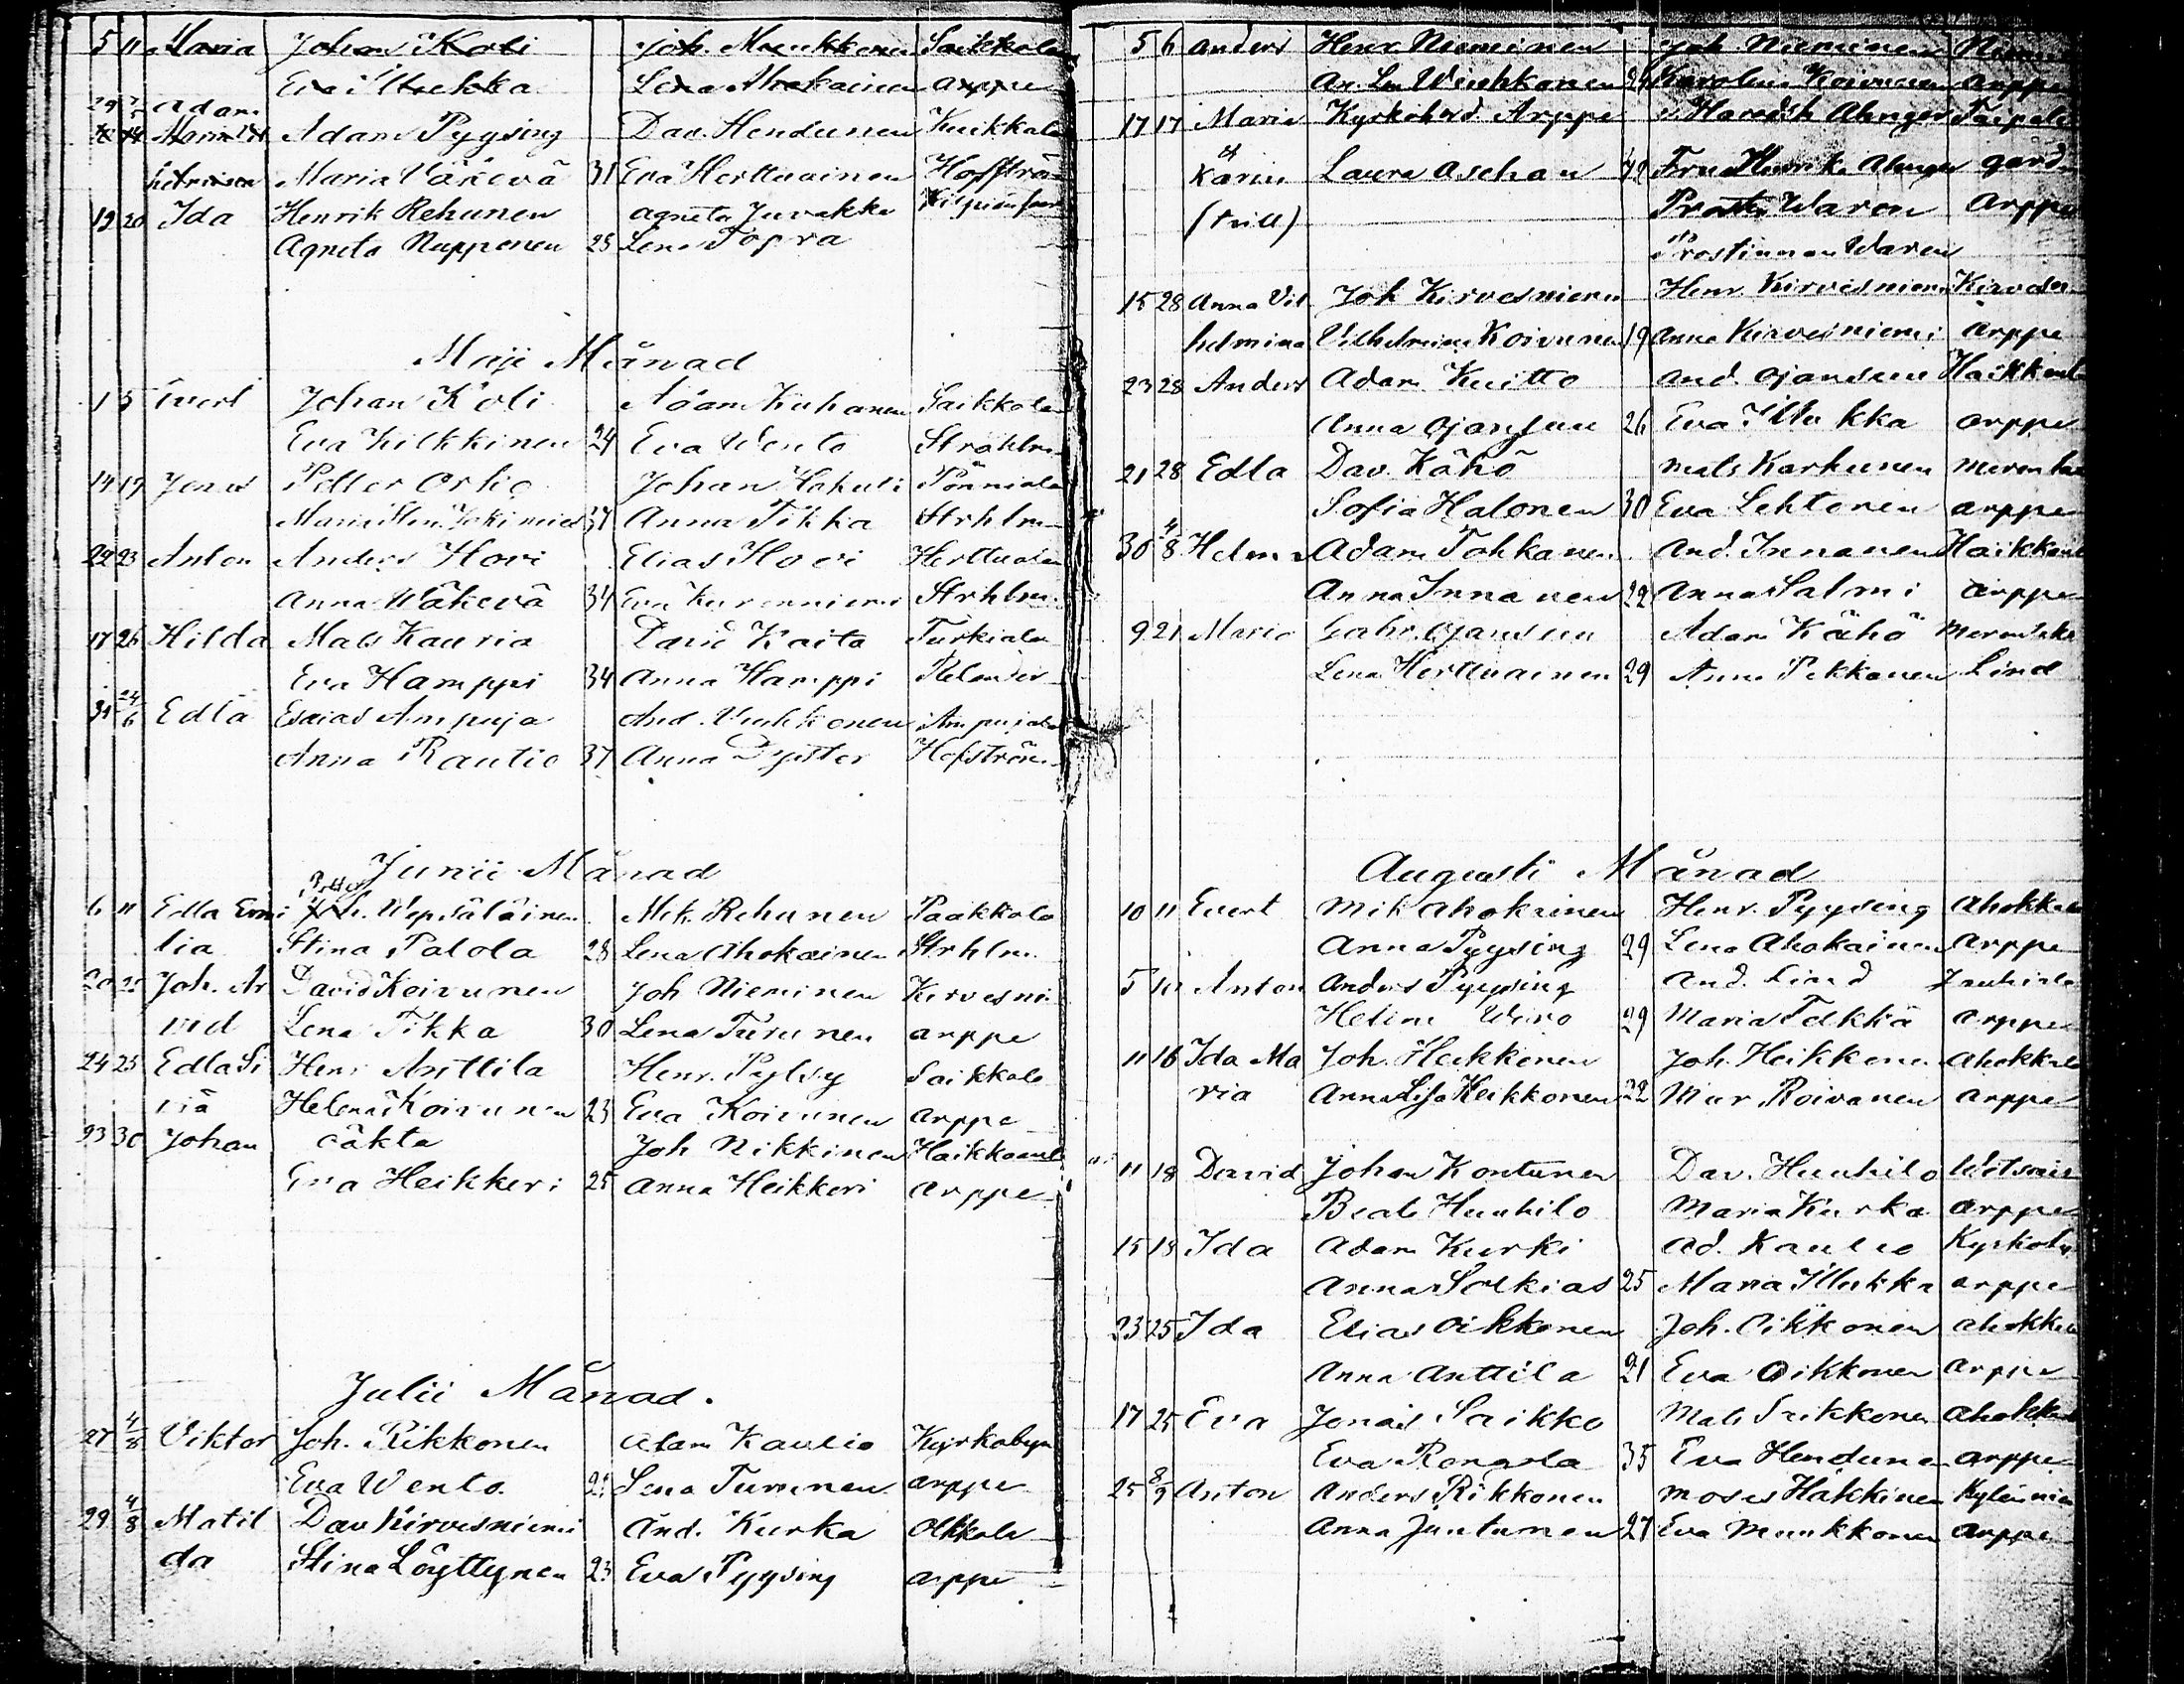 5 11 Maria Johan Koli Joh. Munkkonen Saikkola
Eva Illukka Lena Ahokainen arppe
29 Adam
Adam Pyysing Dav. Hendunen Kuikkala
Maria Väkevä 31 Eva Herttuainen Hoffströ
19 20 Ida Henrik Rehunen Agneta Juvakka
Agneta Nupponen 25 Lena Topra
Maji Månad
1 5 Evert Johan Koli Adam Kuhanen Saikkola
Eva Kilkkinen 24 Eva Wento Strahlm
14 19 Jonas Petter Orko Johan Pönniälä
Maria 37 Anna Tikka Strhlm
22 23 Anton Anders Hovi Elias Hovi Herttuala
Anna Wäkevä 34 Eva Kurenniemi Strhlm.
17 26 Hilda Mats Kauria David Kaita Turkiala
Eva Hamppi 34 Anna Hamppi Relander
31 24/6 Edla Esaias Ampuja And. Vuokkonen Ampujala
Anna Rautio 37 Anna Pyster Hofström
Junii Månad
Petter
6 11 Edla Emi Wepsäläinen Mik. Rehunen Paakkola
lia Stina Palola 28 Lena Ahokainen Strhlm.
20 25 Joh. Ar David Koivunen Joh Nieminen Kirvesni
vid Lena Tikka 30 Lena Turunen arppe
24 25 Edla Si Henr Anttila Henr. Pylsy Saikkola
viä Helena Koivunen 23 Eva Koivunen arppe
23 30 Johan oäkta Joh Nikkinen Haikkaanl
Eva Heikkeri 25 Anna Heikkeri arppe
Julii Månad.
27 4/8 Viktor Joh. Rikkonen Adam Kaulio Kyrkobyn
Eva Wento Lena Tuminen arppe
29 4/8 Matil Dav Kirvesniemi And. Kurka Olkkola
da Stina Löyttynen 23 Eva Pyysing arppe
5 6 Anders Henr Nieminen Joh Nieminen
An. Len Wuokkonen 24 Karolina Koivunen arppe
17 17 Maria Kyrkohrd Arppe Ahnger Taipale
Karin Laura Aschan 42 Fru Henrika Ahnger gård
(trill) Prosten Waren Arppe
Prostinnan Waren
15 28 Anna Vil Joh Kirvesniemi Henr. Kirvesniemi Kirvesn
helmina Vilhelmina Koivunen 19 Anna Kirvesniemi arppe
23 28 Anders Adam Kuitto And. Ojansuu Haikkaal
Anna Ojansuu 26 Eva Illukka arppe
21 28 Edla Dav. Kähö Mats Karhunen
Sofia Halonen 30 Eva Lehtonen arppe
30 4/8 Helena Adam Tohkanen And. Innanen Haikkaal
Anna Innanen 22 Anna Salmi arppe
9 21 Maria Gabr. Ojansuu Adam Kähö
Lena Herttuainen 29 Anna Pekkanen Lind
Augusti Månad
10 11 Evert Mik Ahokainen Henr. Pyysing Ahokkala
Anna Pyysing 29 Lena Ahokainen arppe
5 10 Anton Anders Pyysing And. Lind
Helena Wiro 29 Maria Telkkä arppe
11 16 Ida Ma Joh. Heikkonen Joh. Heikkonen Ahokkala
ria Anna Lisa Keikkonen 22 Mar. Roivanen arppe
11 18 David Johan Kontunen Dav. Huuhilo Witsai
Beata Huuhilo Maria Kurka arppe
15 18 Ida Adam Kurki Ad. Kaulio Kyrkoby
Anna Solkias 25 Maria Illukka arppe
23 25 Ida Elias Oikkonen Joh. Oikkonen Ahokkala
Anna Anttila 21 Eva Oikkonen arppe
17 25 Eva Jonas Saikko Mats Saikkonen Ahokkala
Eva Rongsla 35 Eva Hendunen arppe
25 8/9 Anton Anders Rikkonen Moses Häkkinen Kyläniem
Anna Juutunen 27 Eva Munkkonen arppe